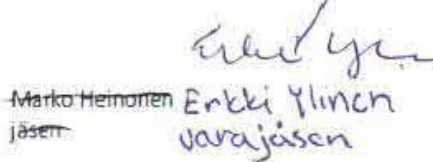 Marko Heinonen Erkki Ylinen
jäsen varajäsen